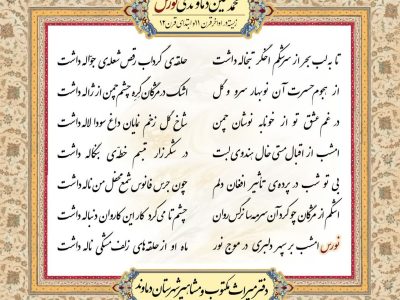 محمد حسین دماوندی نورس
زیسته در اواخر قرن ۱۱ و ابتدای قرن ۱۲
تا به لب بحر از سرشکم اخگر تبخاله داشت
حلقه‌ی گرداب رقص شعله‌ی جواله داشت
از هجوم حسرت آن نوبهار سرو و گل
اشک در مژگان گره چشم چمن از ژاله داشت
در غم عشق تو از خونابه نوشان چمن
شاخ گل زخم نمایان داغ سودا لاله داشت
امشب از اقبال مستی خال هندوی لبت
در شکرزار تبسم خطه‌ی بنگاله داشت
بی تو شب در پرده‌ی تأثیر افغان دلم
چون جرس فانوس شمع محفل من ناله داشت
اشکم از مژگان چو گرد آن سرمه سا نرگس روان
چشم تا می‌کرد کار این کاروان دنباله داشت
نورس امشب بر سپهر دلبری در موج نور
ماه او از حلقه‌های زلف مشکی هاله داشت
دفتر میراث مکتوب و مشاهیر شهرستان دماوند